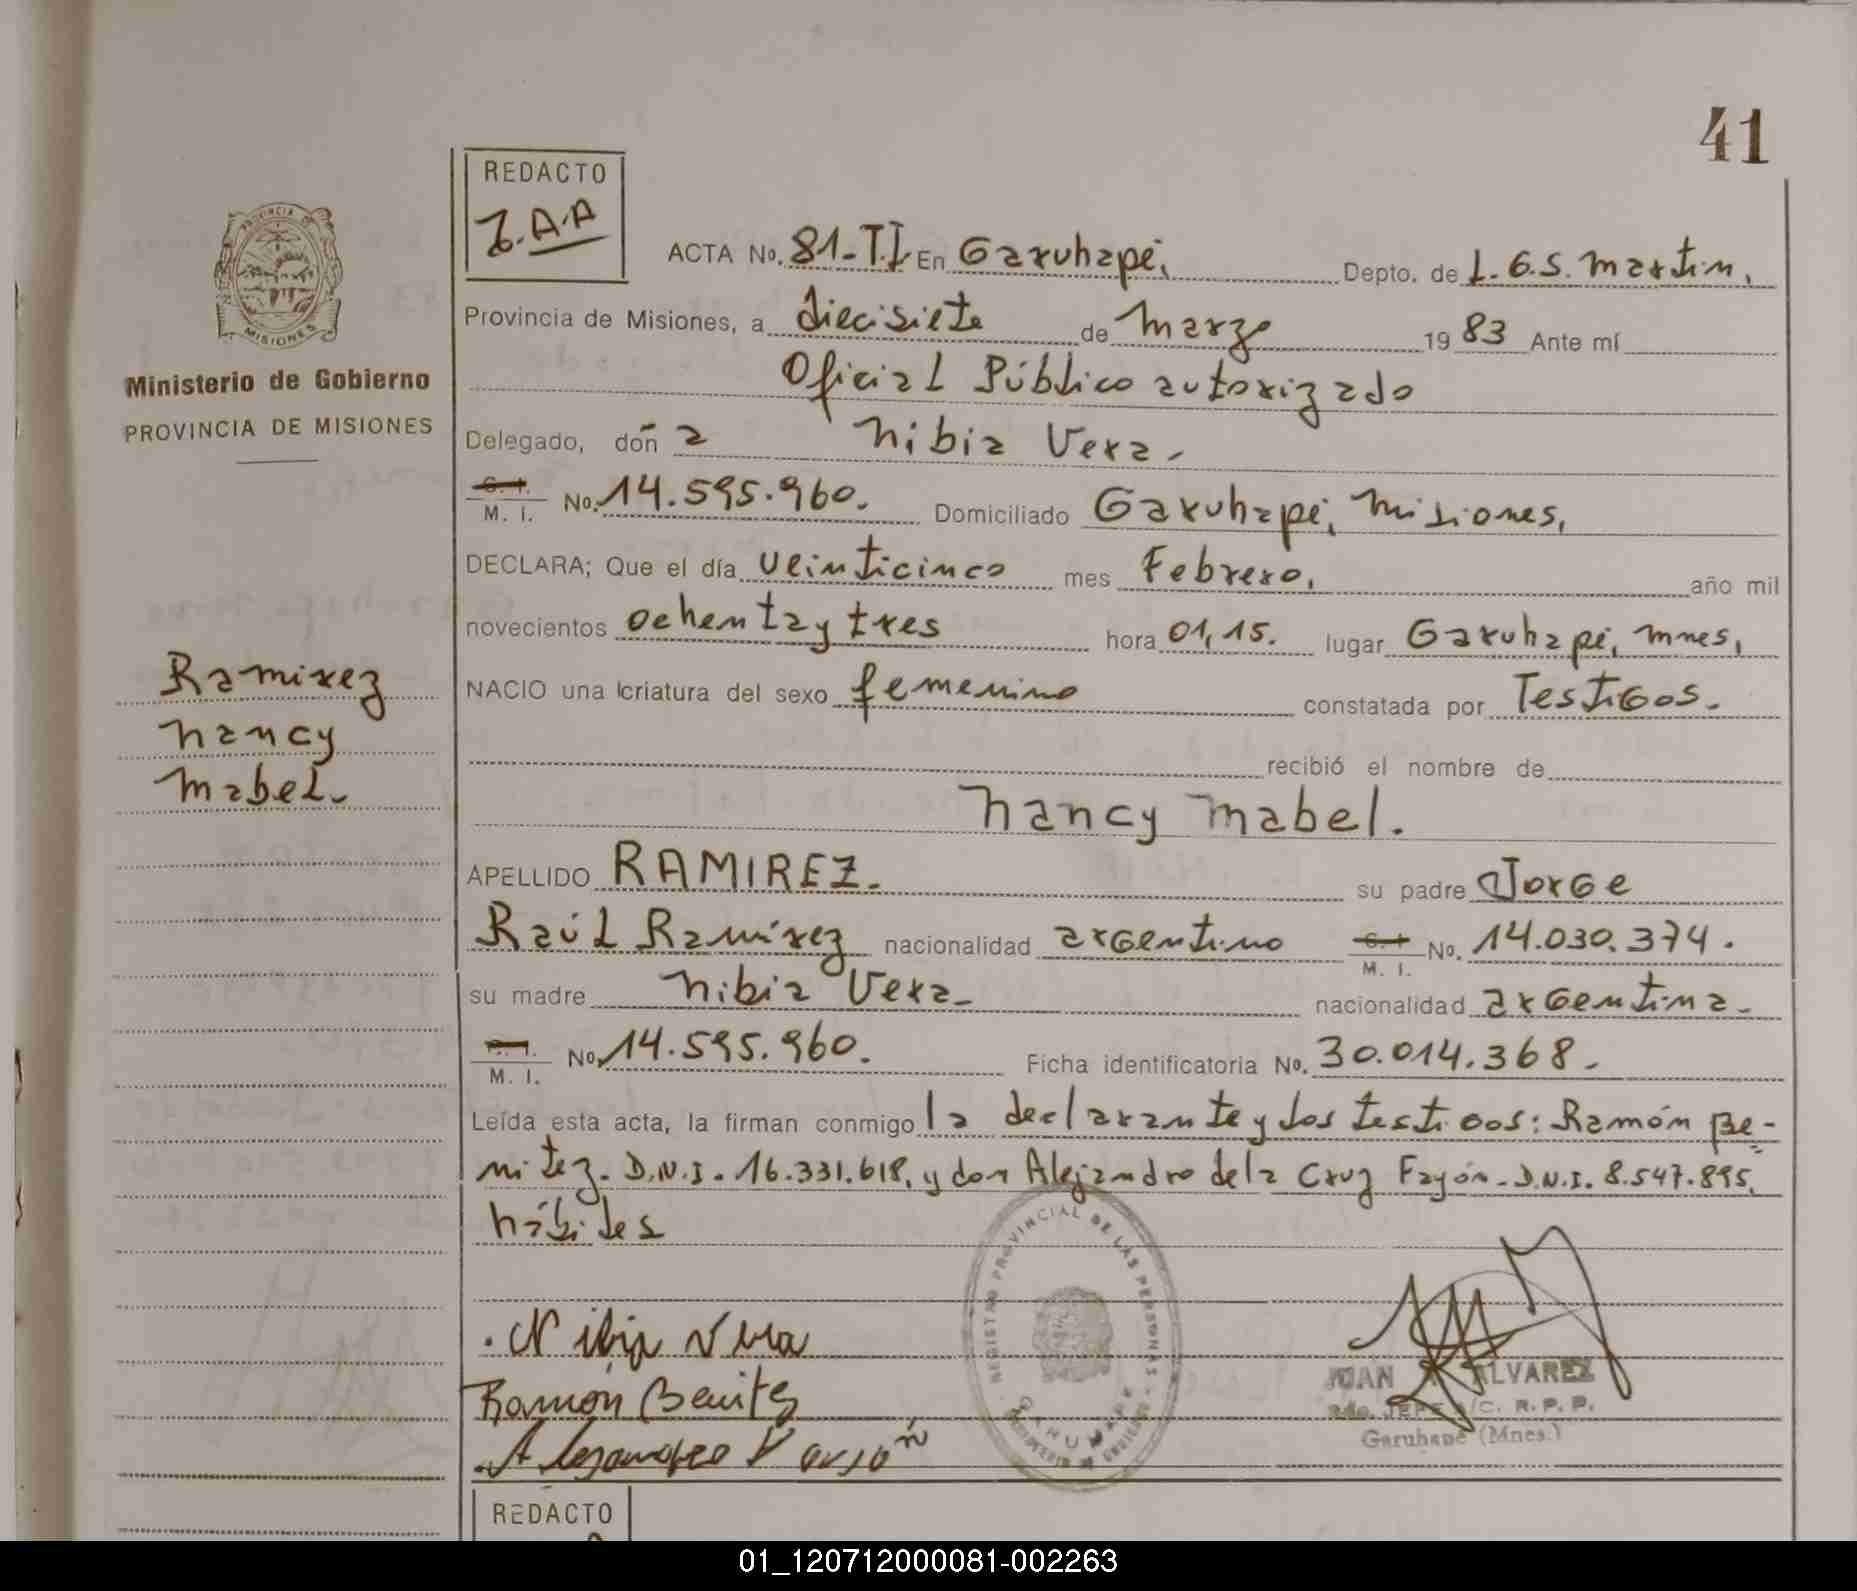 41
REDACTO
J.A.A
ACTA No. 81-T.I. En Garuhapé, Depto. de L.G.S. Martín,
PROVINCIA DE
MISIONES
Provincia de Misiones, a diecisiete de Marzo 1983 Ante mí
Ministerio de Gobierno
Oficial Público autorizado
PROVINCIA DE MISIONES
Delegado, doña Nibia Vera.
C. I. M. I. No. 14.595.960. Domiciliado Garuhapé, Misiones,
DECLARA; Que el día veinticinco mes Febrero, año mil
novecientos ochenta y tres hora 01,15. lugar Garuhapé, Mnes,
Ramirez
Nancy
Mabel.
NACIO una criatura del sexo femenino constatada por Testigos.
recibió el nombre de
Nancy Mabel.
APELLIDO RAMIREZ. su padre Jorge
Raúl Ramírez nacionalidad argentino C. I. M. I. No. 14.030.374.
su madre Nibia Vera. nacionalidad argentina.
C. I. M. I. No. 14.595.960. Ficha identificatoria No. 30.014.368.
Leída esta acta, la firman conmigo la declarante y los testigos: Ramón Be-
nitez. D.N.I. 16.331.618, y don Alejandro de la Cruz Fayón. D.N.I. 8.547.895,
hábiles
REGISTRO PROVINCIAL DE LAS PERSONAS
Nibia Vera
JUAN ALVAREZ
Ramón Benitez
2do. JEFE A/C. R.P.P.
Garuhapé (Mnes.)
Alejandro Fayon
REDACTO
01_120712000081-002263